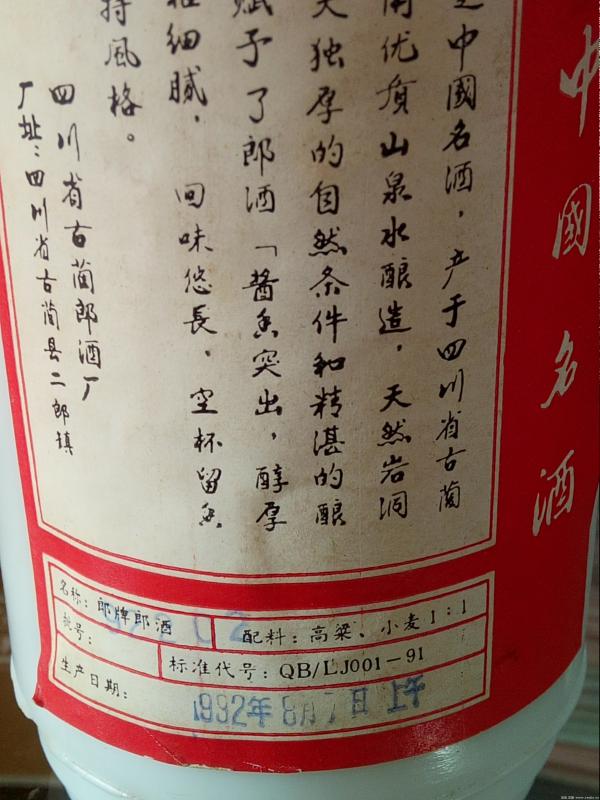 中國名酒
是中國名酒，产于四川省古蔺
用优质山泉水酿造，天然岩洞
天独厚的自然条件和精湛的酿
赋予了郎酒「酱香突出，醇厚
细腻，回味悠長，空杯留香
持風格。
四川省古蔺郎酒厂
厂址：四川省古蔺县二郎镇
名称：郎牌郎酒
配料：高粱、小麦1：1
批号：
标准代号：QB/LJ001－91
生产日期：
1992年8月7日 上午